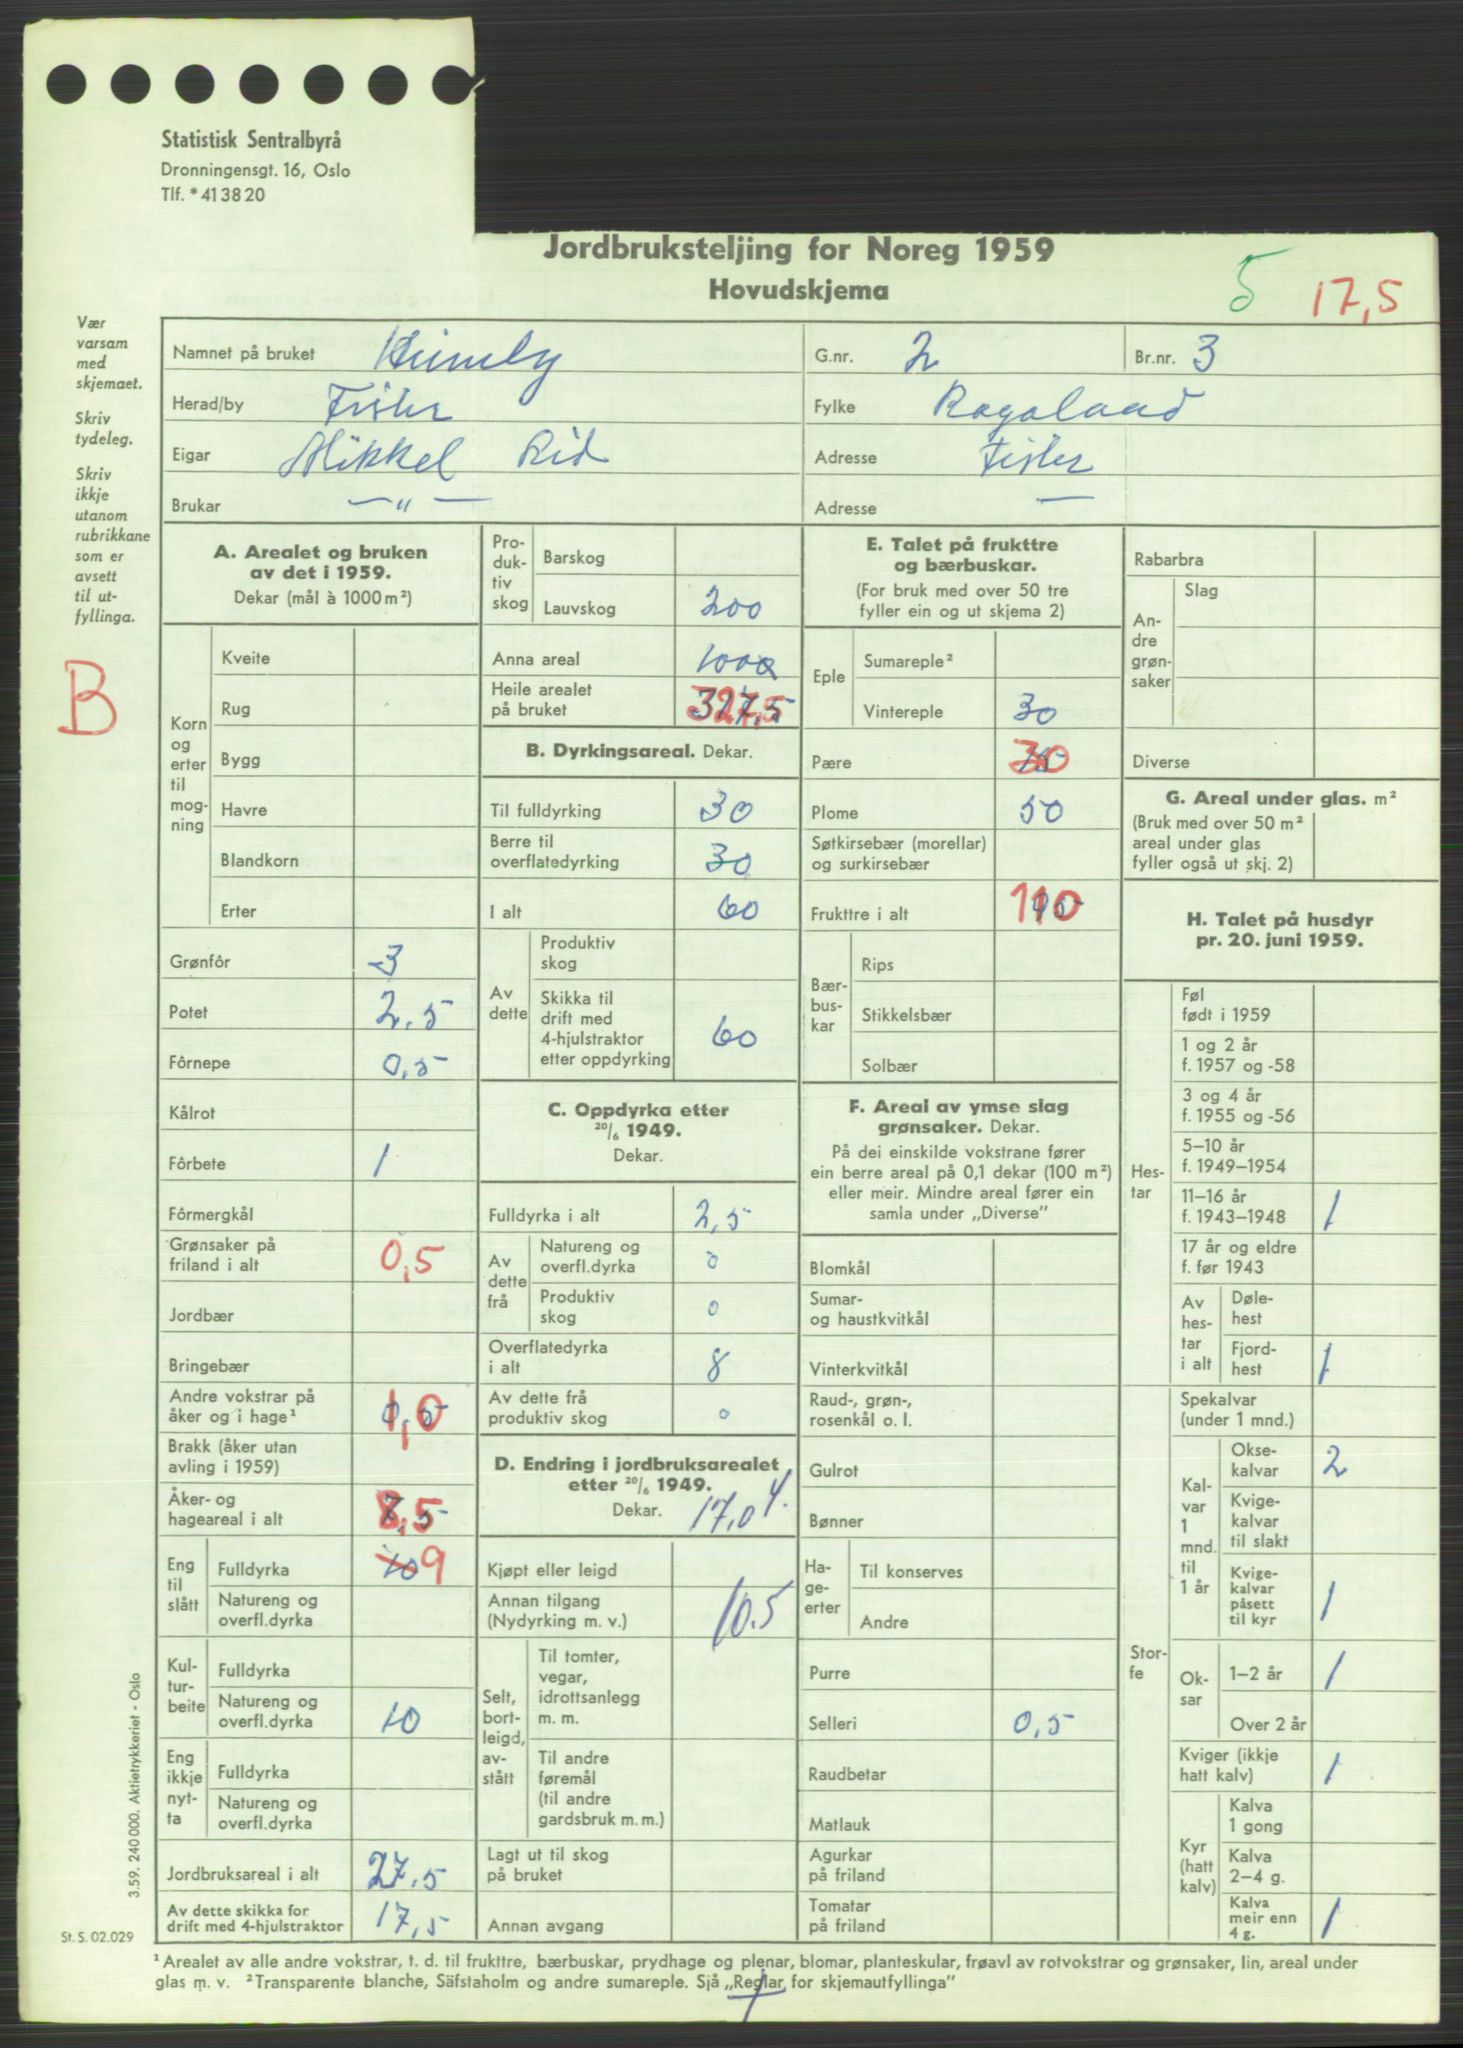 Statistisk Sentralbyrå
Dronningensgt. 16, Oslo
Tlf. *41 38 20
Jordbruksteljing for Noreg 1959
Hovudskjema
5 17,5
Vær
varsam
med
skjemaet.
Skriv
tydeleg.
Skriv
ikkje
utanom
rubrikkane
som er
avsett
til ut-
fyllinga.
B
Namnet på bruket Heimly G.nr. 2 Br.nr. 3
Herad/by Fister Fylke Rogaland
Eigar Mikkel Rid Adresse Fister
Brukar — „ — Adresse —
A. Arealet og bruken
av det i 1959.
Dekar (mål à 1000 m²)
Korn
og
erter
til
mog-
ning
Kveite
Rug
Bygg
Havre
Blandkorn
Erter
Grønfôr 3
Potet 2,5
Fôrnepe 0,5
Kålrot
Fôrbete 1
Fôrmergkål
Grønsaker på
friland i alt 0,5
Jordbær
Bringebær
Andre vokstrar på
åker og i hage¹ 1,0
Brakk (åker utan
avling i 1959)
Åker- og
hageareal i alt 8,5
Eng
til
slått
Fulldyrka 10 9
Natureng og
overfl.dyrka
Kul-
tur-
beite
Fulldyrka
Natureng og
overfl.dyrka 10
Eng
ikkje
nyt-
ta
Fulldyrka
Natureng og
overfl.dyrka
Jordbruksareal i alt 27,5
Av dette skikka for
drift med 4-hjulstraktor 17,5
Pro-
duk-
tiv
skog
Barskog
Lauvskog 200
Anna areal 1000
Heile arealet
på bruket 327,5
B. Dyrkingsareal. Dekar.
Til fulldyrking 30
Berre til
overflatedyrking 30
I alt 60
Av
dette
Produktiv
skog
Skikka til
drift med
4-hjulstraktor
etter oppdyrking 60
C. Oppdyrka etter
20/6 1949.
Dekar.
Fulldyrka i alt 2,5
Av
dette
frå
Natureng og
overfl.dyrka 0
Produktiv
skog 0
Overflatedyrka
i alt 8
Av dette frå
produktiv skog 0
D. Endring i jordbruksarealet
etter 20/6 1949.
Dekar. 17,04.
Kjøpt eller leigd
Annan tilgang
(Nydyrking m. v.) 10.5
Selt,
bort-
leigd,
av-
stått
Til tomter,
vegar,
idrottsanlegg
m. m.
Til andre
føremål
(til andre
gardsbruk m. m.)
Lagt ut til skog
på bruket
Annan avgang
E. Talet på frukttre
og bærbuskar.
(For bruk med over 50 tre
fyller ein og ut skjema 2)
Eple
Sumareple²
Vintereple 30
Pære 30
Plome 50
Søtkirsebær (morellar)
og surkirsebær
Frukttre i alt 110
Bær-
bus-
kar
Rips
Stikkelsbær
Solbær
F. Areal av ymse slag
grønsaker. Dekar.
På dei einskilde vokstrane fører
ein berre areal på 0,1 dekar (100 m²)
eller meir. Mindre areal fører ein
samla under „Diverse”
Blomkål
Sumar-
og haustkvitkål
Vinterkvitkål
Raud-, grøn-,
rosenkål o. l.
Gulrot
Bønner
Ha-
ge-
erter
Til konserves
Andre
Purre
Selleri 0,5
Raudbetar
Matlauk
Agurkar
på friland
Tomatar
på friland
Rabarbra
An-
dre
grøn-
saker
Slag
Diverse
G. Areal under glas. m²
(Bruk med over 50 m²
areal under glas
fyller også ut skj. 2)
H. Talet på husdyr
pr. 20. juni 1959.
Hes-
tar
Føl
født i 1959
1 og 2 år
f. 1957 og -58
3 og 4 år
f. 1955 og -56
5–10 år
f. 1949–1954
11–16 år
f. 1943–1948 1
17 år og eldre
f. før 1943
Av
hes-
tar
i alt
Døle-
hest
Fjord-
hest 1
Stor-
fe
Spekalvar
(under 1 mnd.)
Kal-
var
1
mnd.
til
1 år
Okse-
kalvar 2
Kvige-
kalvar
til slakt
Kvige-
kalvar
påsett
til kyr 1
Ok-
sar
1–2 år 1
Over 2 år
Kviger (ikkje
hatt kalv) 1
Kyr
(hatt
kalv)
Kalva
1 gong
Kalva
2–4 g.
Kalva
meir enn
4 g. 1
3.59. 240 000. Aktietrykkeriet - Oslo
St. S. 02.029
¹ Arealet av alle andre vokstrar, t. d. til frukttre, bærbuskar, prydhage og plenar, blomar, planteskular, frøavl av rotvokstrar og grønsaker, lin, areal under
glas m. v. ² Transparente blanche, Säfstaholm og andre sumareple. Sjå „Reglar for skjemautfyllinga”